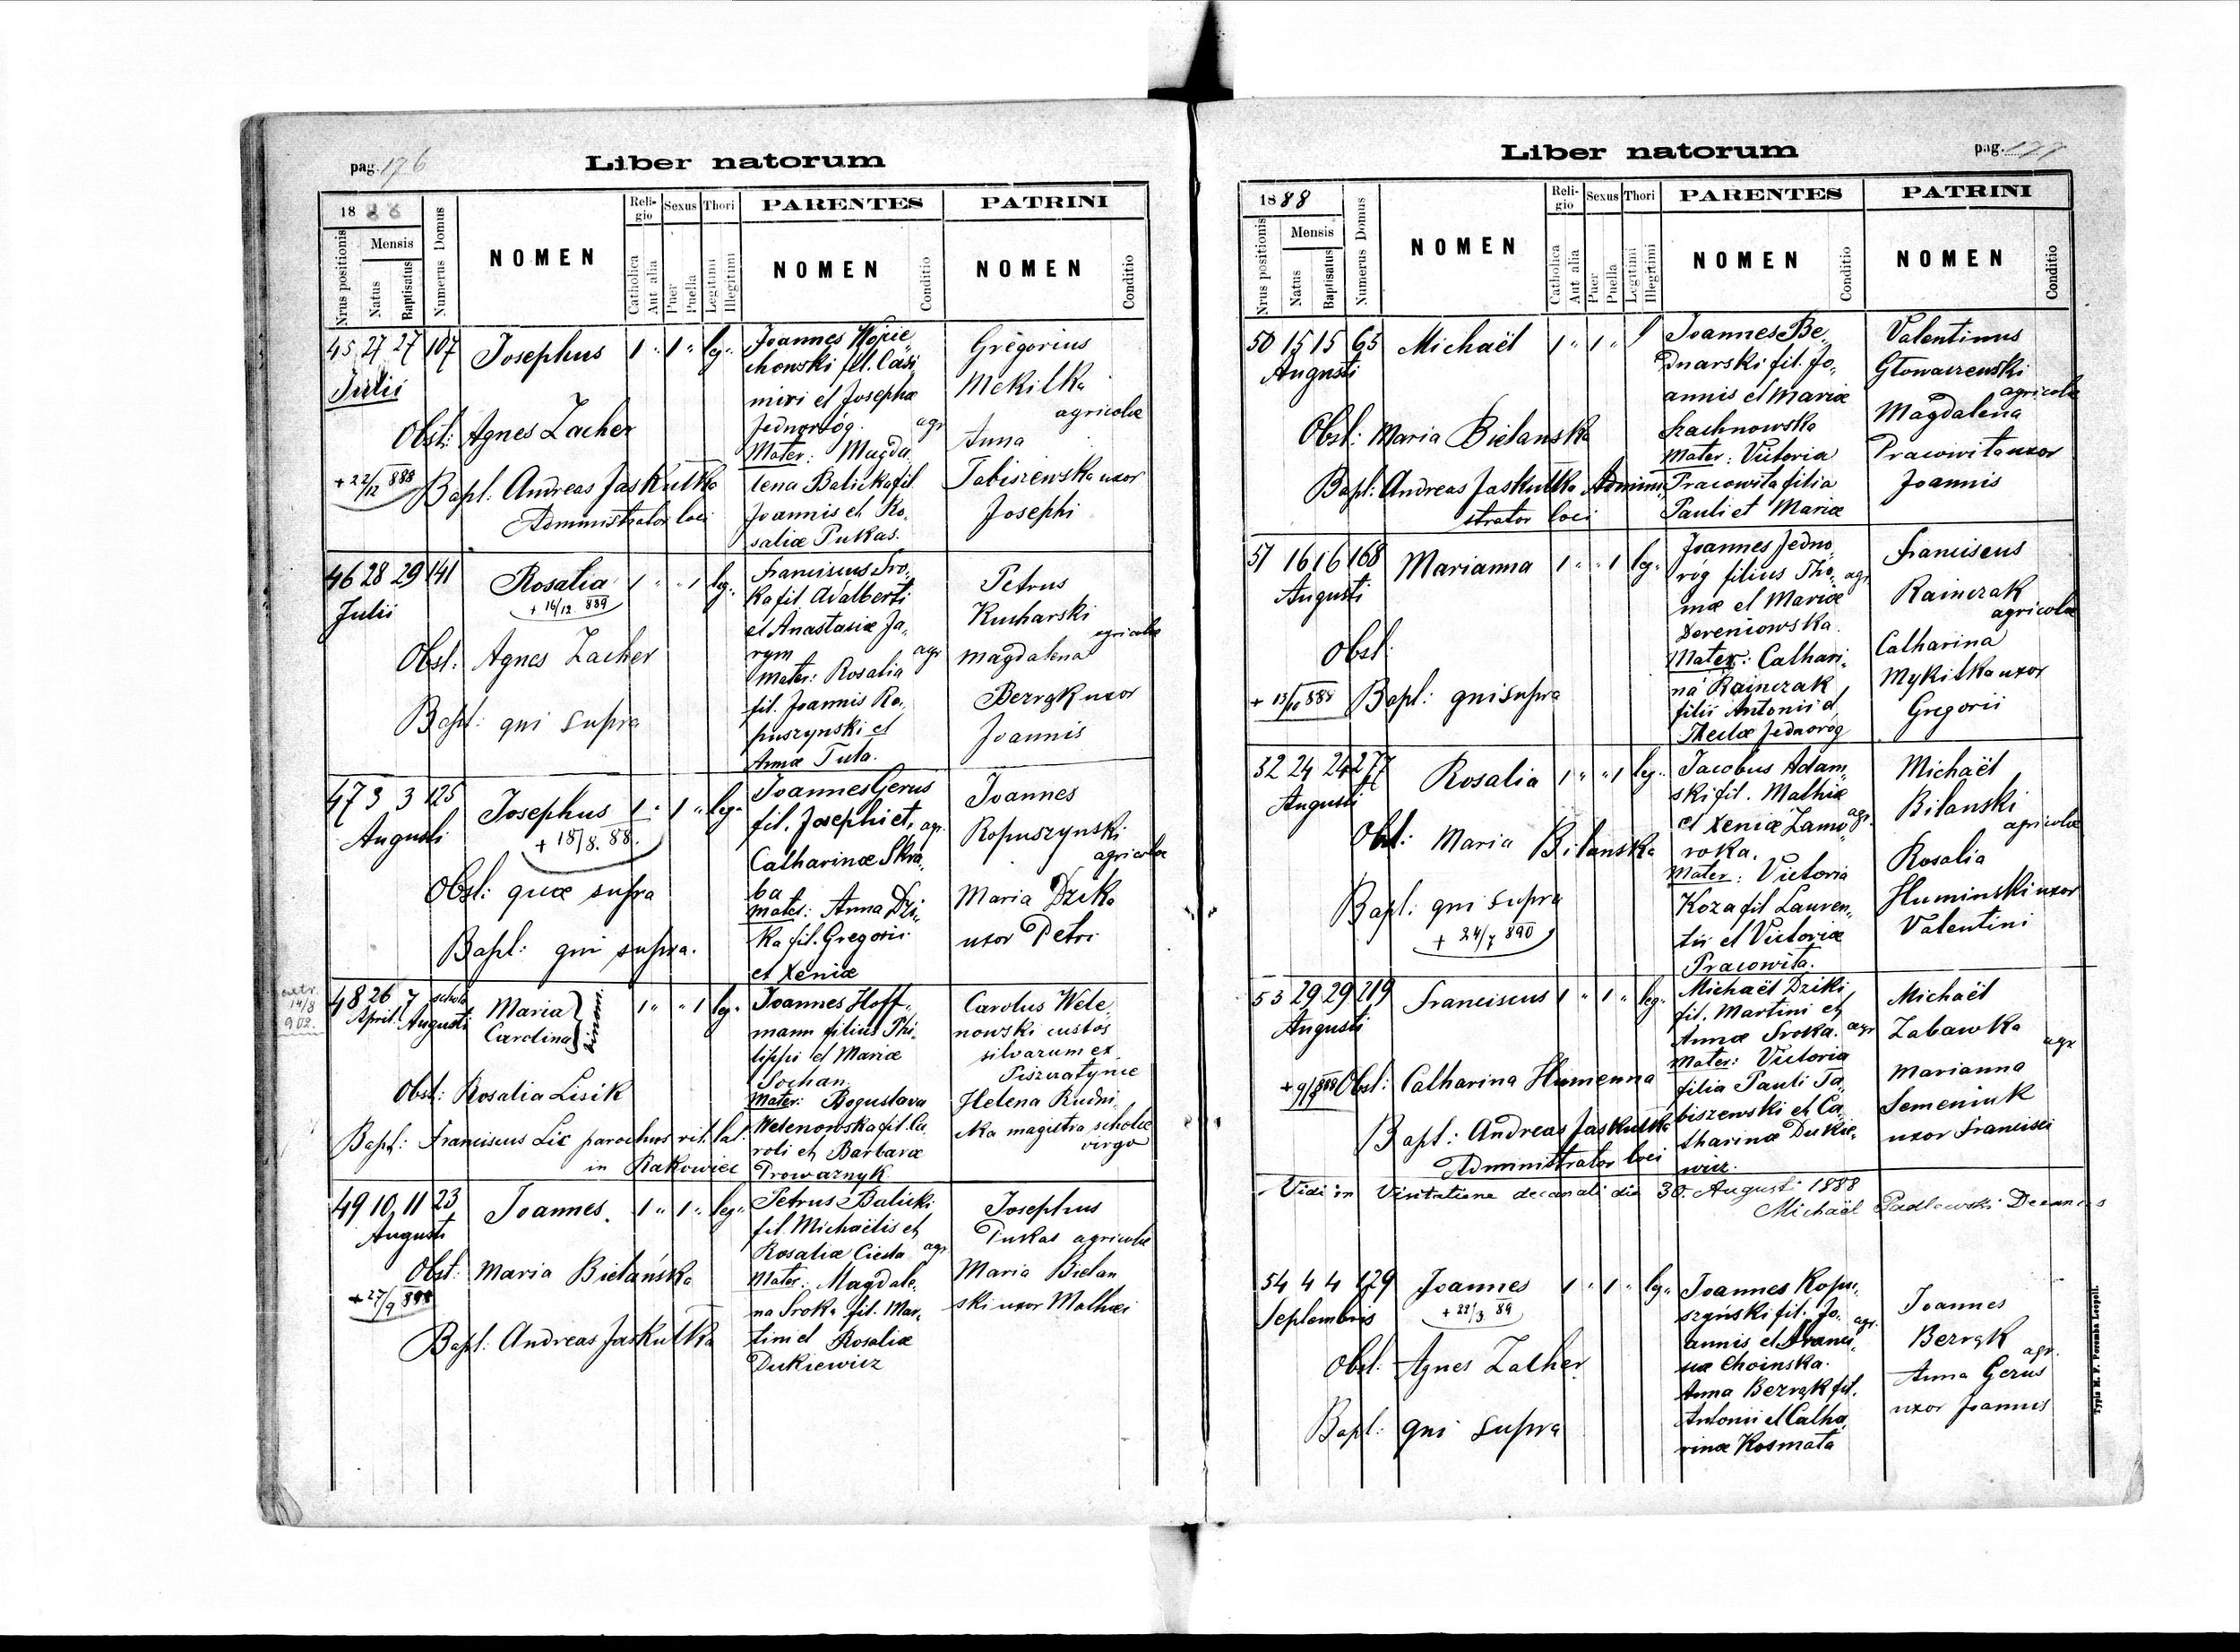 pag. 176
Liber natorum
1888
Nrus positionis
Mensis
Natus
Baptisatus
Numerus Domus
NOMEN
Religio
Catholica
Aut alia
Sexus
Puer
Puella
Thori
Legitimi
Illegitimi
PARENTES
NOMEN
Conditio
PATRINI
NOMEN
Conditio
45 27 27 107 Josephus 1 " 1 " leg"
Julii
Obst: Agnes Zacher
+ 22/12 888
Bapt: Andreas Jaskułka
Administrator loci
Joannes Wojcie„
chowski fil. Casi„
miri et Josephæ
Jednoróg. agr
Mater: Magda
lena Balicka fil.
Joannis et Ro„
saliæ Pukas.
Gregorius
Mekitka
agricolæ
Anna
Tabiszewska uxor
Josephi
46 28 29 141 Rosalia 1 " " 1 leg"
+ 16/12 889
Julii
Obst: Agnes Zacher
Bapt: qui supra
Franciscus Sro„
ka fil Adalberti
et Anastasiæ Ja„
rym agr
Mater: Rosalia
fil. Joannis Ro„
puszynski et
Annæ Tuta.
Petrus
Kucharski
agricolæ
Magdalena
Bezrąk uxor
Joannis
47 3 3 125 Josephus 1 " 1 " leg"
Augusti
+ 18/8. 88.
Obst: quæ supra
Bapt: qui supra.
Joannes Gerus
fil. Josephi et agr.
Catharinæ Skra„
ba
Mater: Anna Dzi„
ka fil. Gregorii
et Xeniæ
Joannes
Ropuszynski
agricolæ
Maria Dzika
uxor Petri
48 26 7 schola Maria Carolina } binom. 1 " " 1 leg"
April. Augusti
14/8
902.
Obst: Rosalia Lisik
Bapt: Franciscus Lic parochus rit. lat.
in Rakowiec
Joannes Hoff„
mann filius Phi„
lippi et Mariæ
Sochan
Mater: Bogustava
Welenowska fil. Ca
roli et Barbaræ
Prowaznyk
Carolus Wele„
nowski custos
silvarum ex
Piszczatynie
Helena Rudni„
cka magistra scholæ
virgo
49 10 11 23 Joannes. 1 " 1 " leg"
Augusti
Obst: Maria Bielańska
+ 27/9
Bapt: Andreas Jaskułka
Petrus Balicki
fil. Michaëlis et
Rosaliæ Ciesla agr
Mater: Magdale„
na Sroka fil. Mar„
tini et Rosaliæ
Dukiewicz
Josephus
Pukas agricolæ
Maria Bielan
ski uxor Mathæi
Liber natorum
pag. 177
1888
Nrus positionis
Mensis
Natus
Baptisatus
Numerus Domus
NOMEN
Religio
Catholica
Aut alia
Sexus
Puer
Puella
Thori
Legitimi
Illegitimi
PARENTES
NOMEN
Conditio
PATRINI
NOMEN
Conditio
50 15 15 65 Michaël 1 " 1 " 1
Augusti
Obst: Maria Bielanska
Bapt: Andreas Jaskułka Admini„
strator loci
Joannes Be„
dnarski fil. Jo„
annis et Mariæ
Lachnowska
Mater: Victoria
Pracowita filia
Pauli et Mariæ
Valentinus
Głowaczewski
agricolæ
Magdalena
Pracowita uxor
Joannis
51 16 16 168 Marianna 1 " " 1 leg"
Augusti
Obst.
Bapt: qui supra
Joannes Jedno„
róg filius Tho„ agr
mæ et Mariæ
Dereniowska.
Mater: Cathari„
na Rainczak
filii Antonii et
Theclæ Jednoróg
Franciscus
Rainczak
agricolæ
Catharina
Mykitka uxor
Gregorii
52 24 24 277 Rosalia 1 " " 1 leg"
Augusti
Obst: Maria Bilanska
Bapt: qui supra
+ 24/7 890
Jacobus Adam„
ski fil. Mathiæ
et Xeniæ Zamo„ agr.
roka.
Mater: Victoria
Koza fil Lauren„
tii et Victoriæ
Pracowita.
Michaël
Bilanski
agricolæ
Rosalia
Huminski uxor
Valentini
53 29 29 219 Franciscus 1 " 1 " leg"
Augusti
Obst: Catharina Humenna
Bapt: Andreas Jaskułka
Administrator loci
Michaël Dziki
fil. Martini et
Annæ Sroka. agr
Mater: Victoria
filia Pauli Ta„
biszewski et Ca„
tharinæ Dukie„
wicz.
Michaël
Zabawka
agr
Marianna
Semeniuk
uxor Francisci
Vidi in Visitatione decanali die 30. Augusti 1888
Michaël Padlewski Decanus
54 4 4 129 Joannes 1 " 1 " leg"
Septembris
+ 22/3 89
Obst: Agnes Zacher
Bapt: qui supra
Joannes Ropu„
szyński fil. Jo„ agr.
annis et Franci„
scæ Choinska.
Anna Bezrąk fil.
Antonii et Catha„
rinæ Kosmata
Joannes
Bezrąk
agr.
Anna Gerus
uxor Joannis
Typis M. F. Poremba Leopoli.